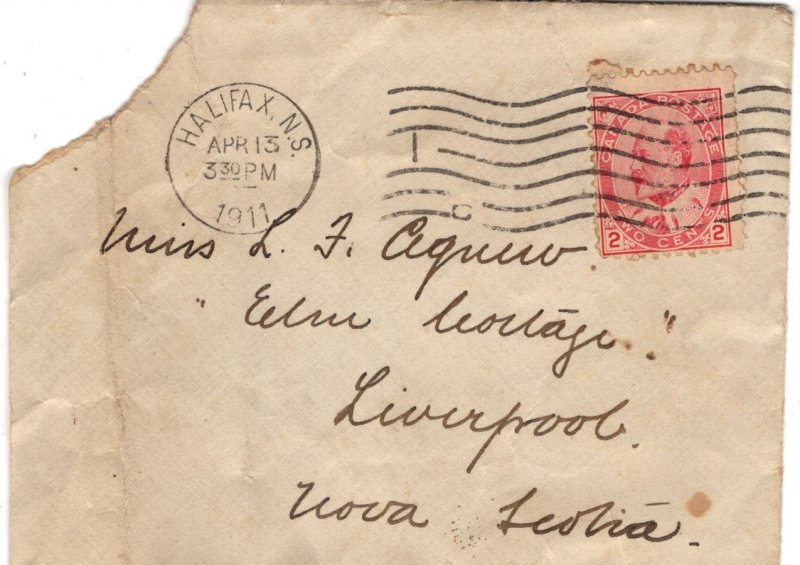 HALIFAX, N.S.
APR 13
3 30 PM
1911
CANADA POSTAGE
2 TWO CENTS 2
Miss L. F. Agnew.
"Elm Cottage."
Liverpool.
Nova Scotia.